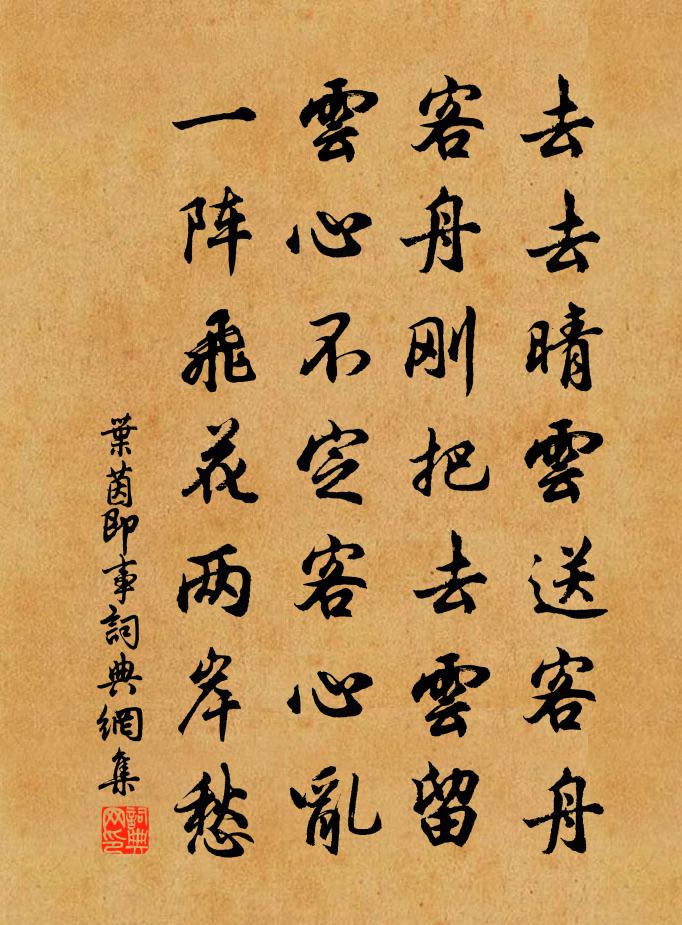 去去晴雲送客舟
客舟刚把去雲留
雲心不定客心亂
一阵飛花两岸愁
葉茵即事詞典網集
詞典网印